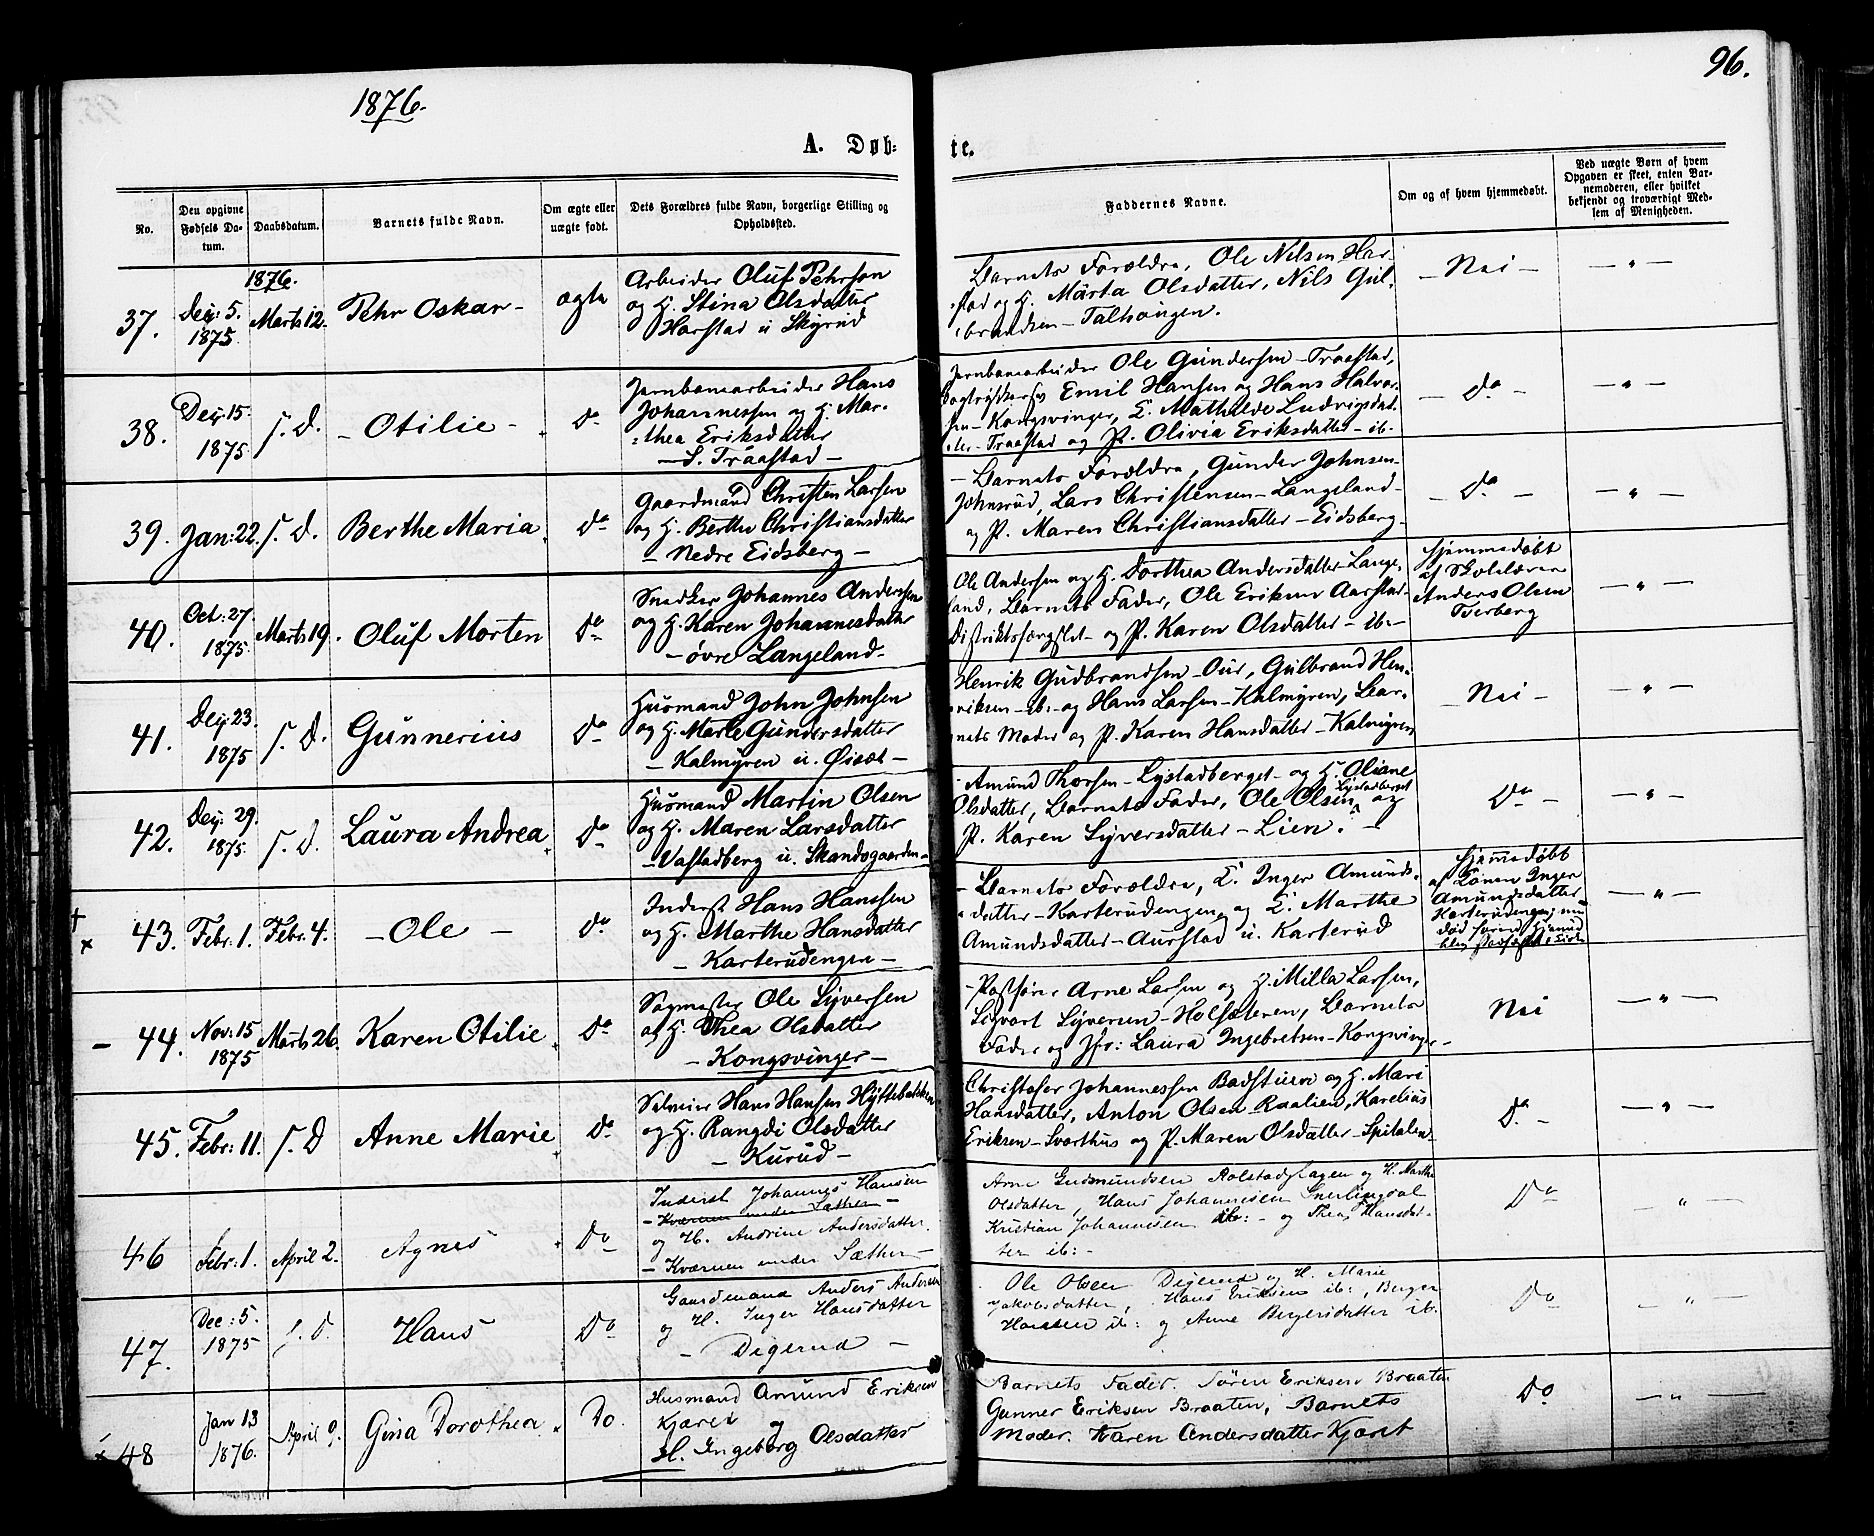 1876.
96.
A. Døb-
te.
No.
Den opgivne
Fødsels Da-
tum.
Daabsdatum.
Barnets fulde Navn.
Om ægte eller
uægte født.
Dets Forældres fulde Navn, borgerlige Stilling og
Opholdssted.
Faddernes Navne.
Om og af hvem hjemmedøbt.
Ved uægte Børn af hvem
Opgaven er skeet, enten Bar-
nemoderen, eller hvilket
bekjendt og troværdigt Med-
lem af Menigheden.
37.
Dec: 5.
1875.
1876.
Marts 12.
Pehr Oskar -
ægte
Arbeider Oluf Pehrson
og H. Stina Olsdatter
Harstad u Skyrud
Barnets Forældre, Ole Nilsen Har-
stad og H. Märta Olsdatter, Nils Gul-
brandsen - Talhaugen.
- Nei -
- " -
38.
Dec: 15.
1875.
s. D.
- Otilie -
do
Jernbanearbeider Hans
Johannessen og H. Mar-
thea Eriksdatter
- S. Traastad -
Jernbanearbeider Ole Gundersen - Traastad,
Emil Hansen og Hans Halvor-
sen - Kongsvinger, E. Mathilde Ludvigsdat-
ter - Traastad og P. Olivia Eriksdatter - ib -
- do -
- " -
39.
Jan: 22.
s. D.
Berthe Maria
do
Gaardmand Christen Larsen
og H. Berthe Christiansdatter
- Nedre Eidsberg -
- Barnets Forældre, Gunder Johnsen -
Johnsrud, Lars Christensen - Langeland -
og P. Maren Christiansdatter - Eidsberg -
- do -
- " -
40.
Oct: 27.
1875.
Marts 19.
Oluf Morten
do
Snedker Johannes Andersen
og H. Karen Johannesdatter
- øvre Langeland -
Ole Andersen og H. Dorthea Andersdatter - Lange-
land, Barnets Fader, Ole Eriksen Aarstad -
Distriktsfængslet - og P. Karen Olsdatter - ib -
Hjemmedøbt
af Skolelærer
Anders Olsen
Tjerberg
- " -
41.
Dec: 23.
1875
s. D.
Gunnerius
do
Husmand John Johnsen
og H. Marte Gundersdatter
- Kalmyren u. Øiset -
Henrik Gudbrandsen - Our, Gulbrand Hen-
riksen - ib - og Hans Larsen - Kalmyren, Bar-
nets Moder og P. Karen Hansdatter - Kalmyren
- Nei -
- " -
42.
Dec: 29.
1875.
s. D.
Laura Andrea
do
Husmand Martin Olsen
og H. Maren Larsdatter
- Vastadberg u. Skandsgaarden -
- Amund Thorsen - Lystadberget - og H. Oliane
Olsdatter, Barnets Fader, Ole Olsen Lystadberget og
P. Karen Syversdatter - Lien. -
do -
- " -
43.
Febr: 1.
Febr: 4.
- Ole -
do
Inderst Hans Hanssen
og H. Marthe Hansdatter
- Karterudengen -
- Barnets Forældre, E. Inger Amunds-
datter - Karterudengen og E. Marthe
Amundsdatter - Aurstad u. Karterud
Hjemmedøbt
Inger
Amundsdatter
Karterudengen,
død
- " -
- 44.
Nov: 15
1875
Marts 26.
Karen Otilie
do
Sagmester Ole Syversen
og H. Thea Olsdatter
- Kongsvinger -
Arne Larsen og H. Milla Larsen,
Sigvart Syversen - Holsæteren, Barnets
Fader og Jfr: Laura Ingebretsen - Kongsvinger -
Nei
- " -
45.
Febr: 11.
s. D
Anne Marie
do
Hans Hansen Hyttebakken
og H. Rangdi Olsdatter
- Kurud -
Christofer Johannessen Badstuen og H. Mari
Hansdatter, Anton Olsen Raalien, Karelius
Eriksen - Svarthus og P. Maren Olsdatter - Spitalen -
do -
- " -
46
Febr: 1.
April 2.
Agnes
Do
Inderst Johannes Hansen
- Kværnen under Sæther -
og H. Andrine Andersdatter.
- Kværnen under Sæther -
Arne Gudmundsen Rolstadhagen og H. Marthe
Olsdatter, Hans Johannesen Snerlingdal
Kristian Johannesen ib: - og Thea Hansdat-
ter ib: -
Do
- " -
47.
Dec: 5.
1875
s. D.
Hans
Do
Gaardmand Anders Andersen
og H. Inger Hansdatter
- Digerud -
Ole Olsen Digerud og H. Marie
Jakobsdatter, Hans Eriksen ib:, Berger
Hansen ib: og Anne Bergersdatter ib.
Do
- " -
48
Jan 13
1876.
April 9.
Gina Dorothea
Do.
Husmand Amund Eriksen
Kjæret og
H. Ingeborg Olsdatter
Barnets Fader. Søren Eriksen Braaten
Gunner Eriksen Braaten, Barnets
Moder. Karen Andersdatter Kjæret
Do
- " -